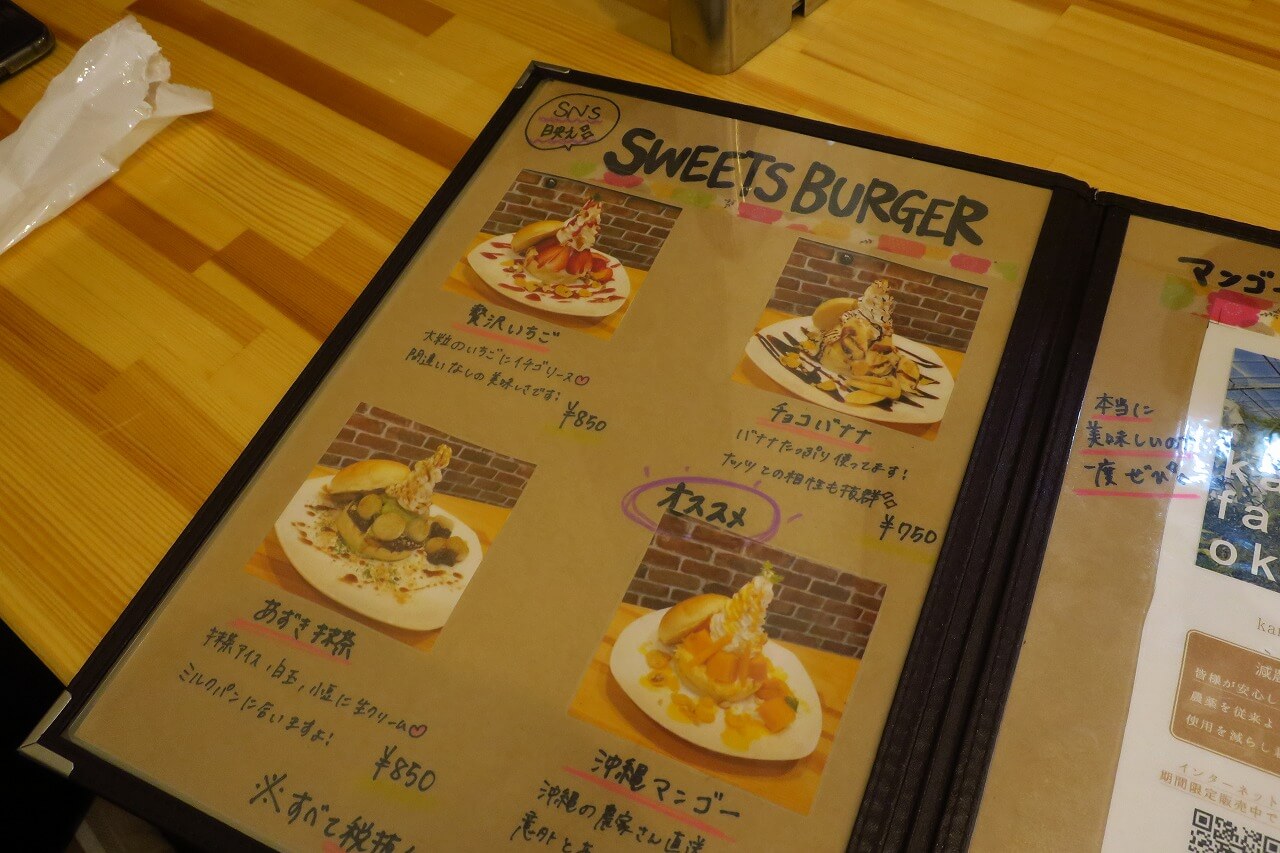 SNS
映え
SWEETS BURGER
贅沢いちご
大粒のいちごにイチゴソース♡
間違いなしの美味しさです!
¥850
チョコバナナ
バナナたっぷり使ってます!
ナッツとの相性も抜群
¥750
あずき抹茶
抹茶アイス、白玉、小豆に生クリーム♡
ミルクパンに合いますよ!
¥850
オススメ
沖縄マンゴー
沖縄の農家さん直送
意外と
※すべて税抜
マンゴー
本当に
美味しいの
一度ぜひ
ka
fa
ok
皆様が安心し
農薬を従来よ
使用を減らし
インターネット
期間限定販売中で